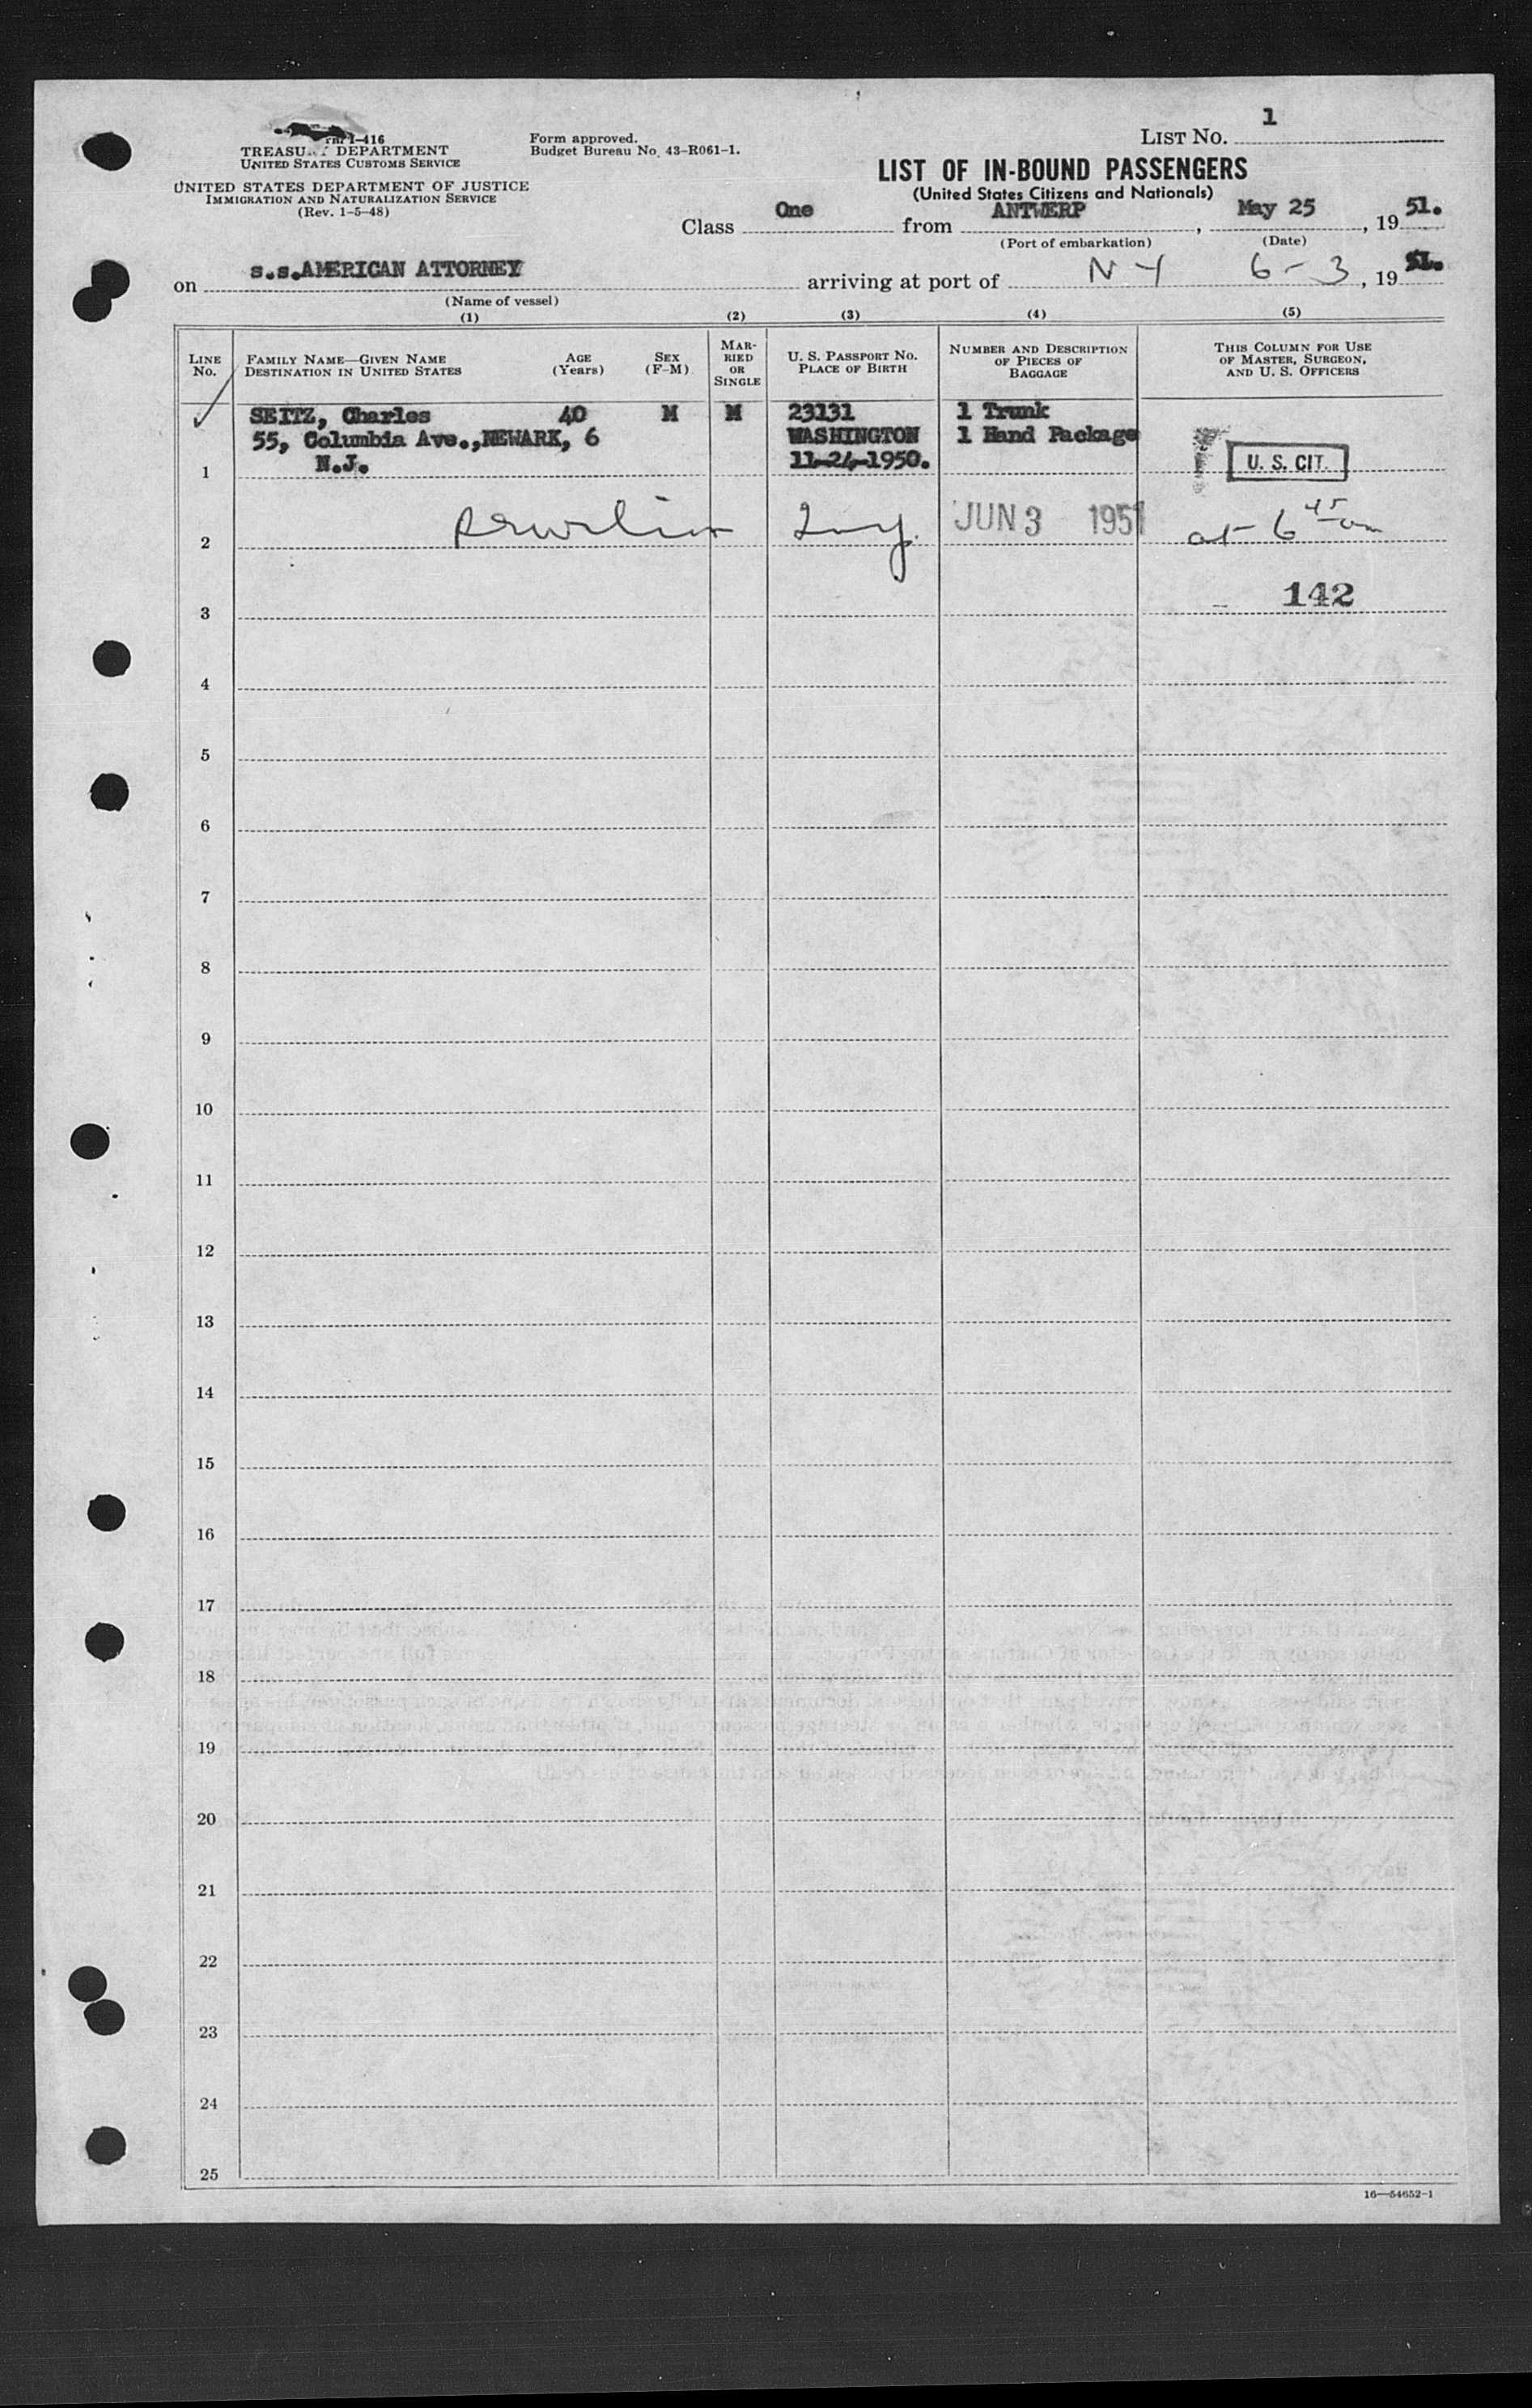 1
Form I-416
TREASURY DEPARTMENT
UNITED STATES CUSTOMS SERVICE
UNITED STATES DEPARTMENT OF JUSTICE
IMMIGRATION AND NATURALIZATION SERVICE
(Rev. 1-5-48)
Form approved.
Budget Bureau No. 43-R061-1.
LIST NO.
LIST OF IN-BOUND PASSENGERS
(United States Citizens and Nationals)
Class One from ANTWERP, May 25, 19 51.
(Port of embarkation) (Date)
on s.s.AMERICAN ATTORNEY arriving at port of N Y 6-3, 19 51.
(Name of vessel)
(1) (2) (3) (4) (5)
LINE NO.
FAMILY NAME—GIVEN NAME
DESTINATION IN UNITED STATES
AGE (Years)
SEX (F-M)
MARRIED OR SINGLE
U. S. PASSPORT NO.
PLACE OF BIRTH
NUMBER AND DESCRIPTION OF PIECES OF BAGGAGE
THIS COLUMN FOR USE OF MASTER, SURGEON, AND U. S. OFFICERS
SEITZ, Charles 40 M M 23131 1 Trunk
55, Columbia Ave.,NEWARK, 6 WASHINGTON 1 Hand Package
N.J. 11-24-1950.
1 U. S. CIT.
2 JUN 3 1951 at 6 45 am
3 142
4
5
6
7
8
9
10
11
12
13
14
15
16
17
18
19
20
21
22
23
24
25
16—54652-1